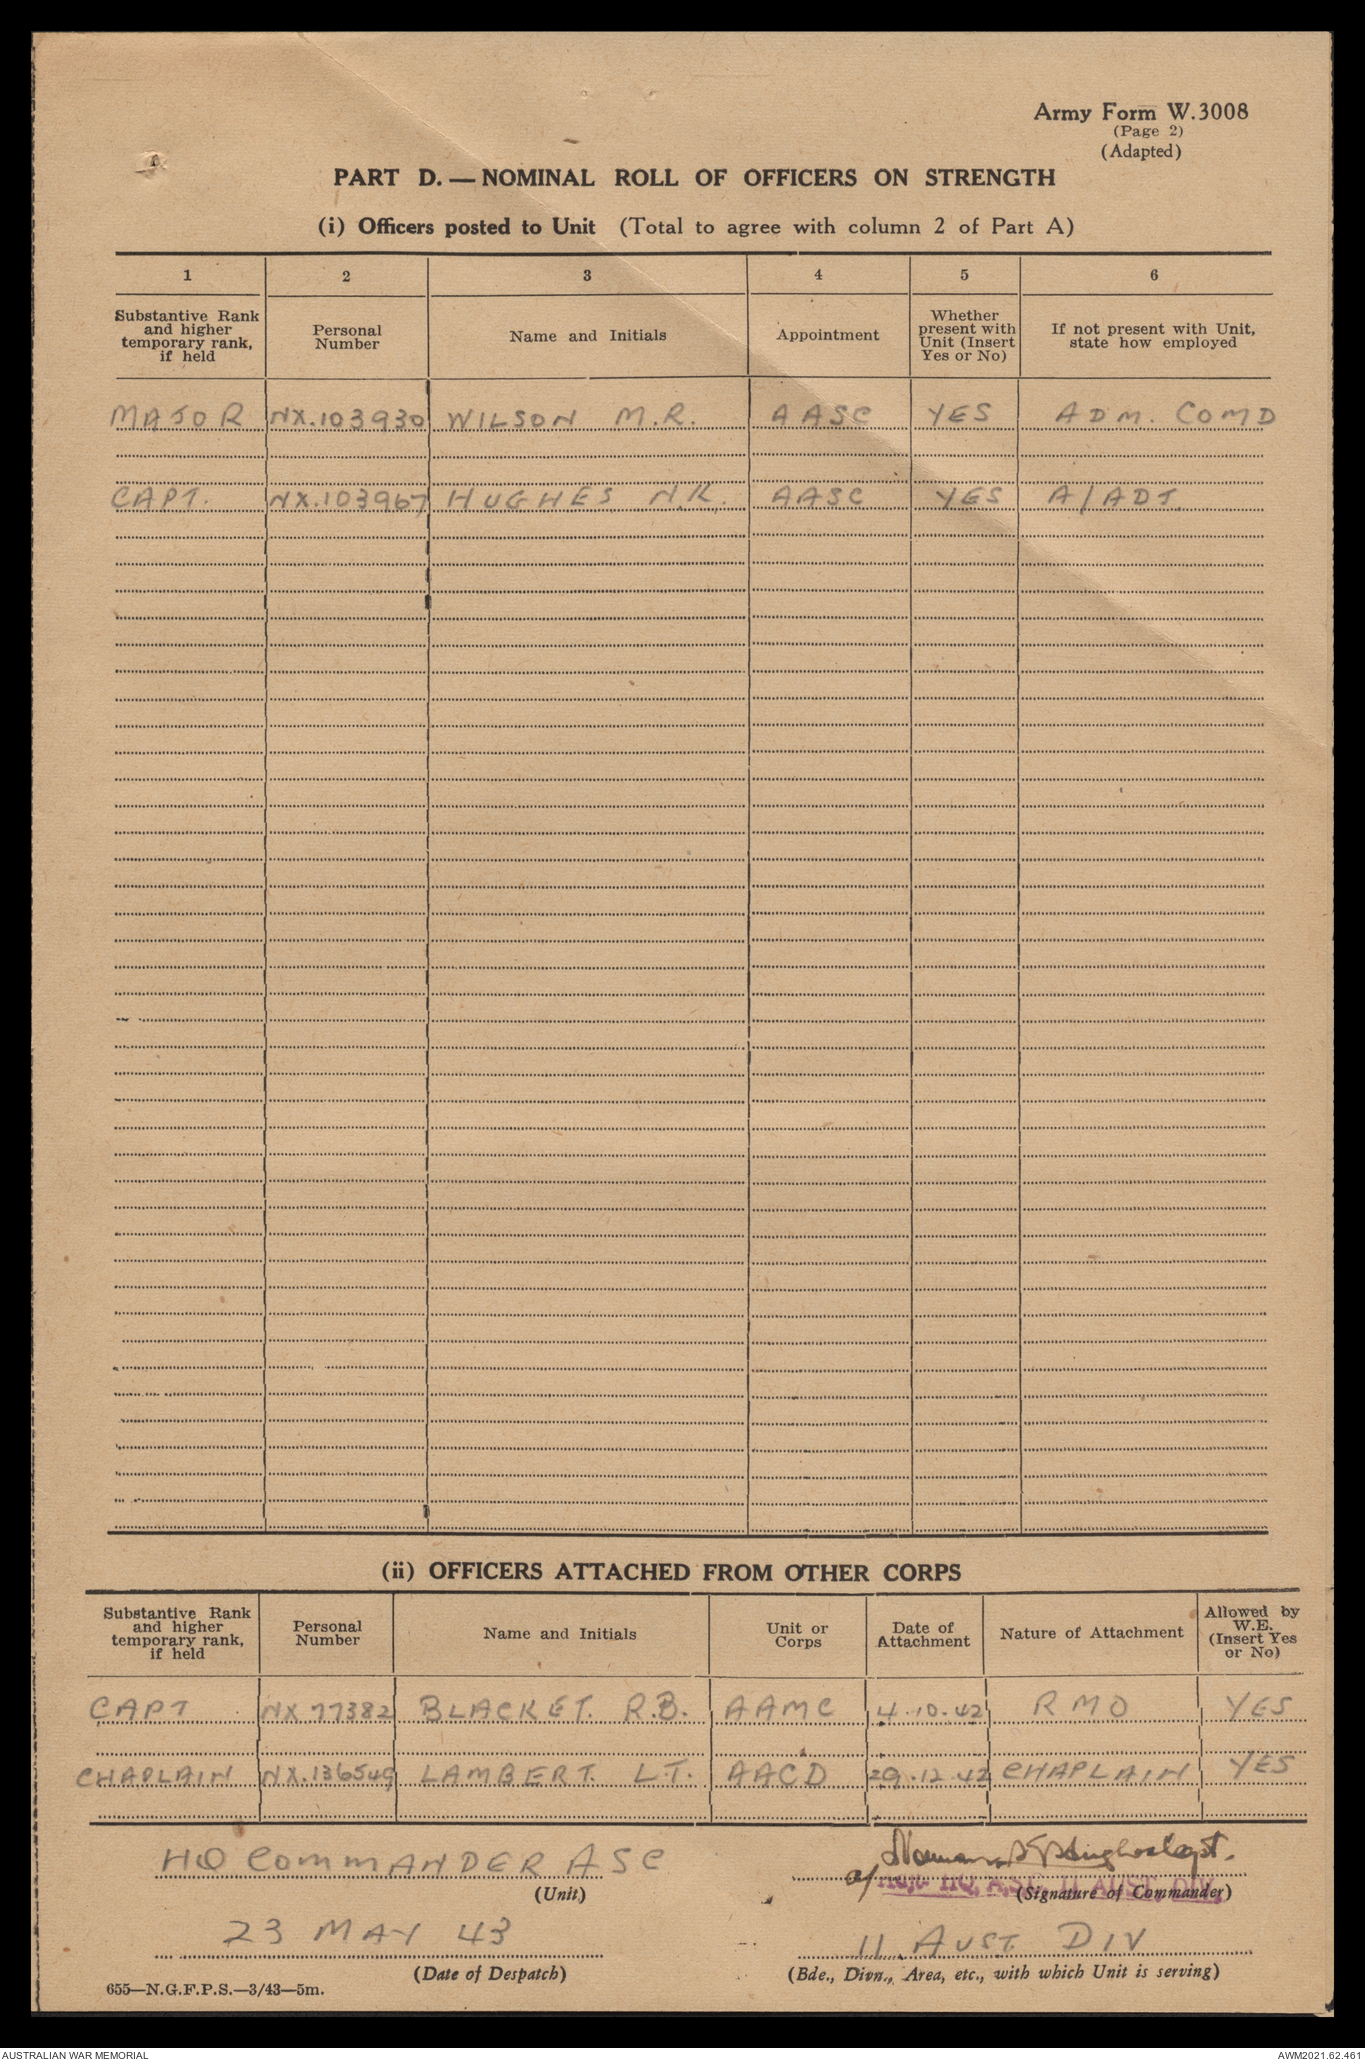 Army Form W.3008
(Page 2)
(Adapted)
PART D. — NOMINAL ROLL OF OFFICERS ON STRENGTH
(i) Officers posted to Unit (Total to agree with column 2 of Part A)
1 2 3 4 5 6
Substantive Rank and higher temporary rank, if held Personal Number Name and Initials Appointment Whether present with Unit (Insert Yes or No) If not present with Unit, state how employed
MAJOR NX.103930 WILSON M.R. AASC YES ADM. COMD
CAPT. NX.103967 HUGHES N.R. AASC YES A/ADJ.
(ii) OFFICERS ATTACHED FROM OTHER CORPS
Substantive Rank and higher temporary rank, if held Personal Number Name and Initials Unit or Corps Date of Attachment Nature of Attachment Allowed by W.E. (Insert Yes or No)
CAPT NX 77382 BLACKET. R.B. AAMC 4.10.42 RMO YES
CHAPLAIN NX.136549 LAMBERT. L.T. AACD 29.12.42 CHAPLAIN YES
HQ COMMANDER ASC
(Unit)
Capt.
a/ HQ, A.S.C. 11 AUST. DIV.
(Signature of Commander)
23 MAY 43
(Date of Despatch)
11 AUST DIV
(Bde., Divn., Area, etc., with which Unit is serving)
655—N.G.F.P.S.—3/43—5m.
AUSTRALIAN WAR MEMORIAL AWM2021.62.461